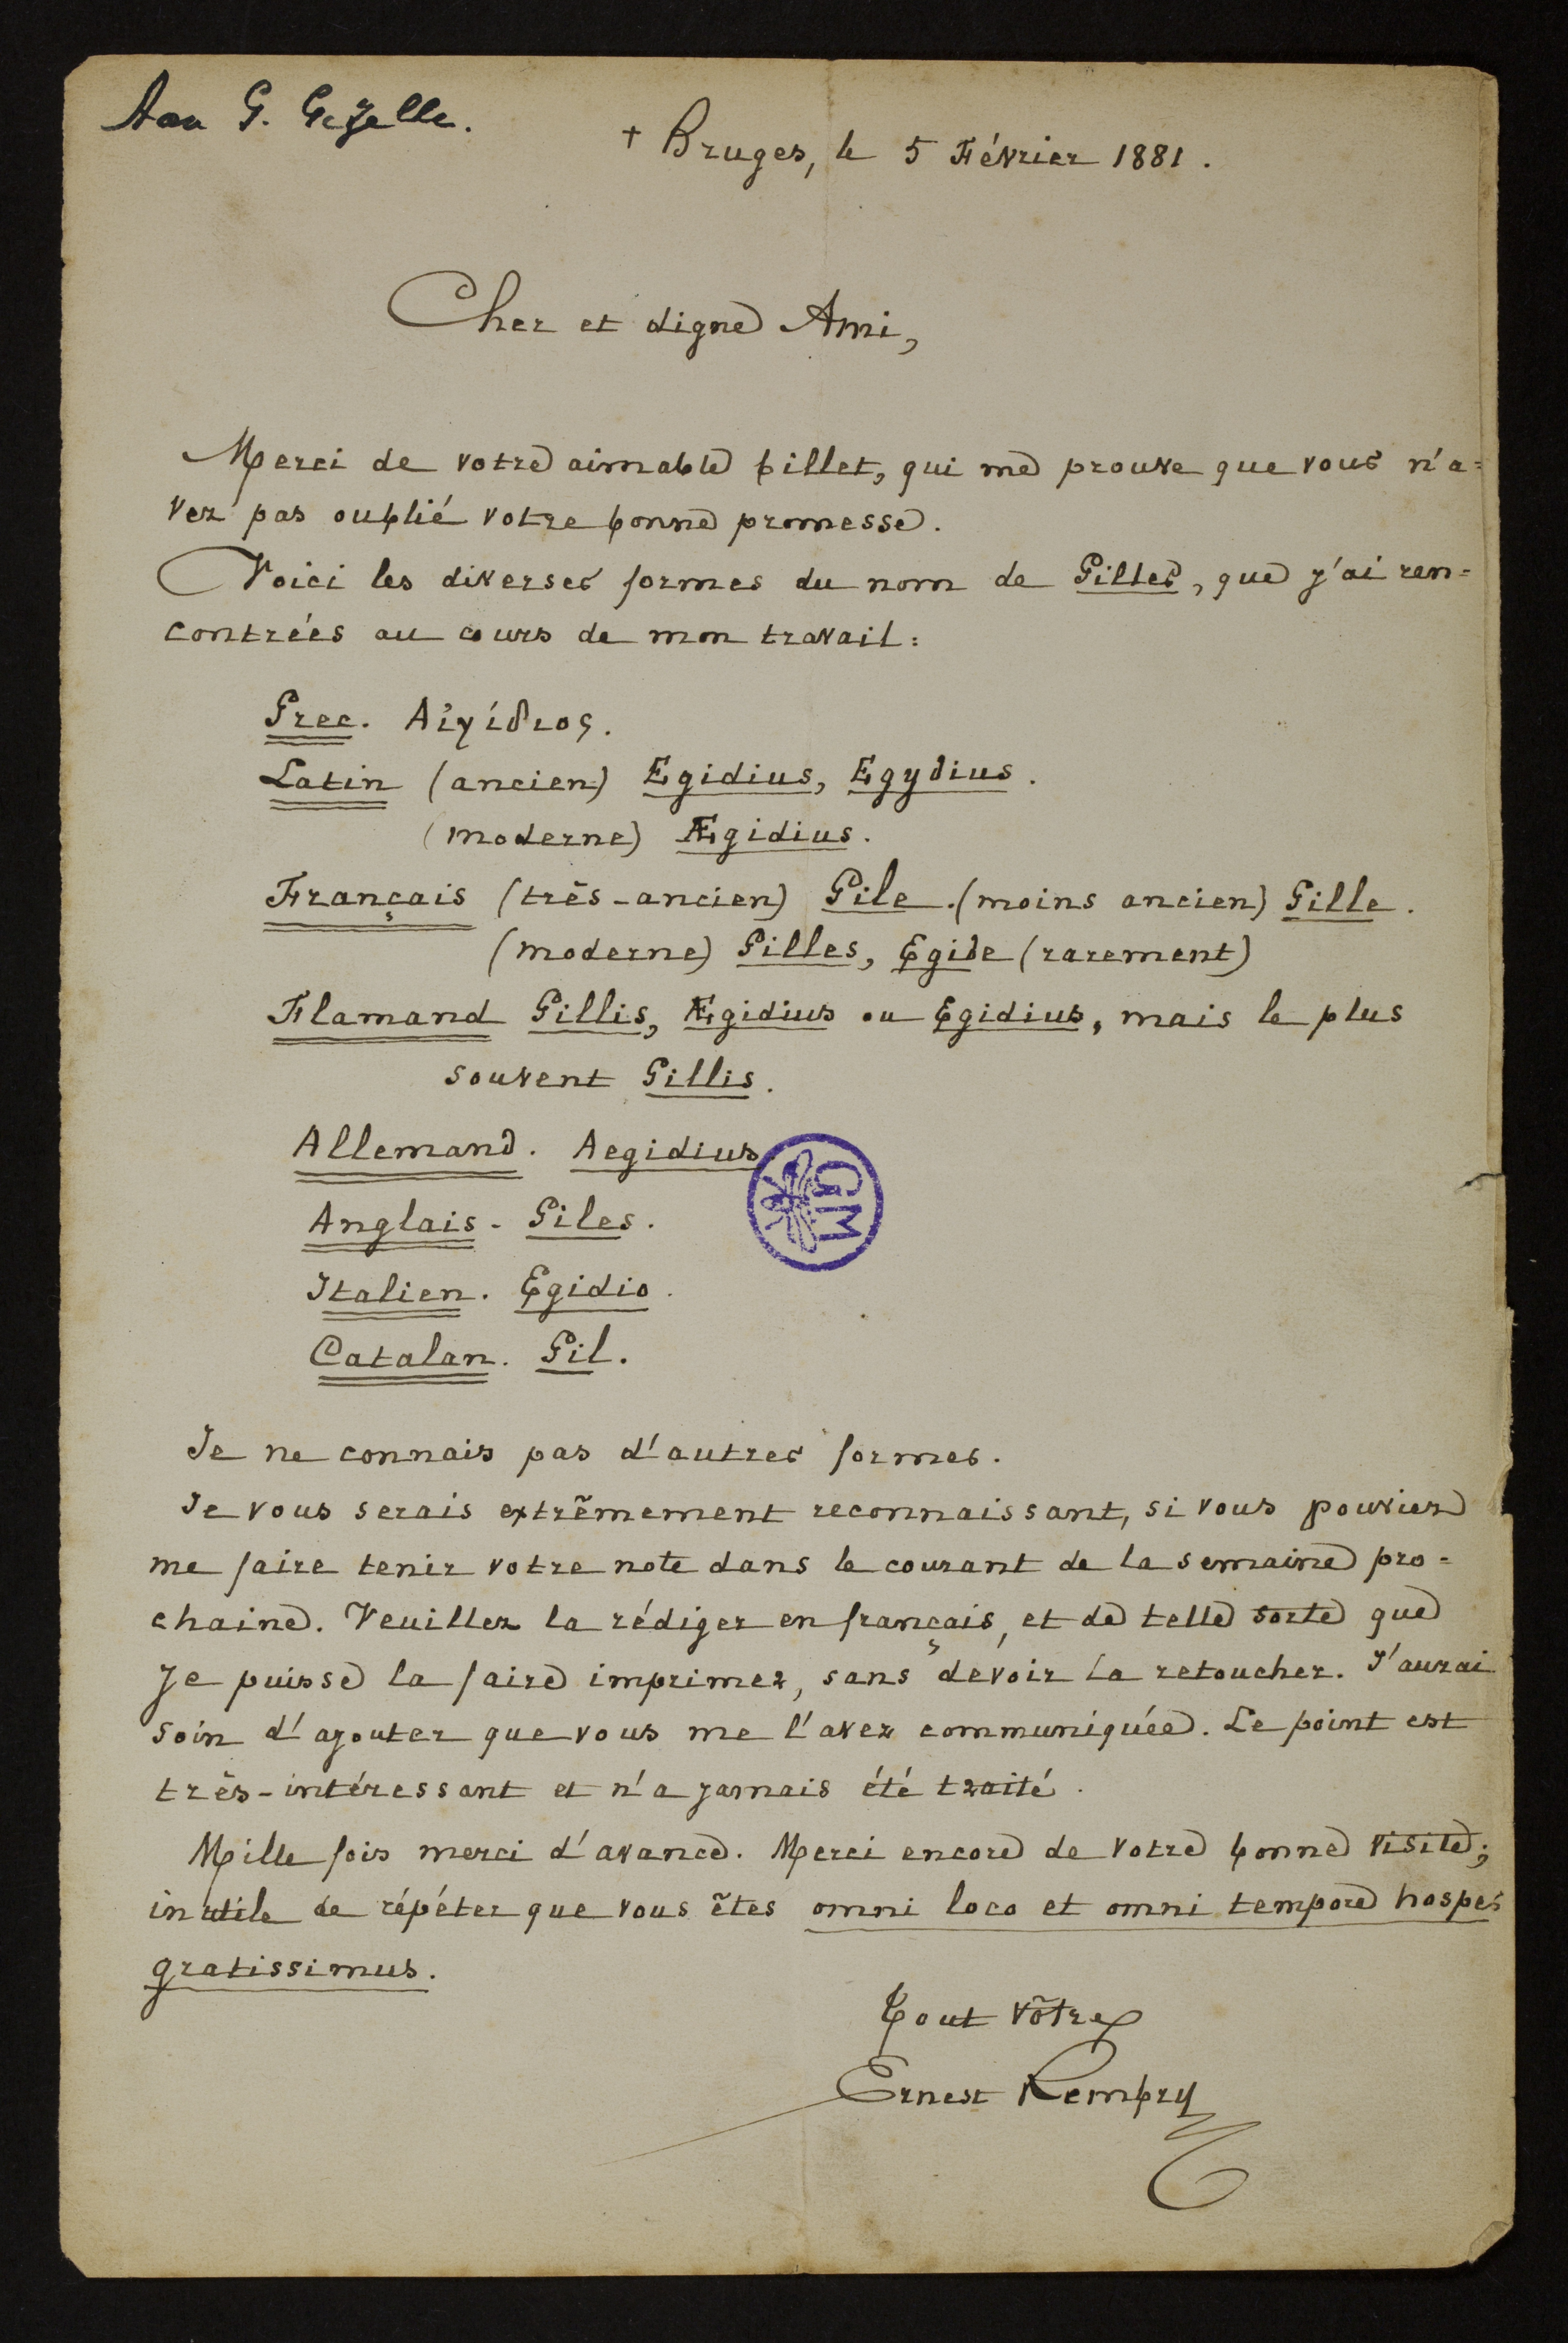 Aan G. Gezelle.
+ Bruges, le 5 Février 1881.
Cher et digne Ami,
Merci de votre aimable billet, qui me prouve que vous n'a=
vez pas oublié votre bonne promesse.
Voici les diverses formes du nom de Gilles, que j'ai ren=
contrées au cours de mon travail:
Grec. Αἰγίδιος.
Latin (ancien) Egidius, Egydius.
(moderne) Ægidius.
Français (très-ancien) Gile. (moins ancien) Gille.
(moderne) Gilles, Egide (rarement)
Flamand Gillis, Ægidius ou Egidius, mais le plus
souvent Gillis.
Allemand. Aegidius
GM
Anglais - Giles.
Italien. Egidio.
Catalan. Gil.
Je ne connais pas d'autres formes.
Je vous serais extrêmement reconnaissant, si vous pouviez
me faire tenir votre note dans le courant de la semaine pro=
chaine. Veuillez la rédiger en français, et de telle sorte que
je puisse la faire imprimer, sans devoir la retoucher. J'aurai
soin d'ajouter que vous me l'avez communiquée. Le point est
très-intéressant et n'a jamais été traité.
Mille fois merci d'avance. Merci encore de votre bonne visite;
inutile de répéter que vous êtes omni loco et omni tempore hospes
gratissimus.
Tout vôtre
Ernest Rembry